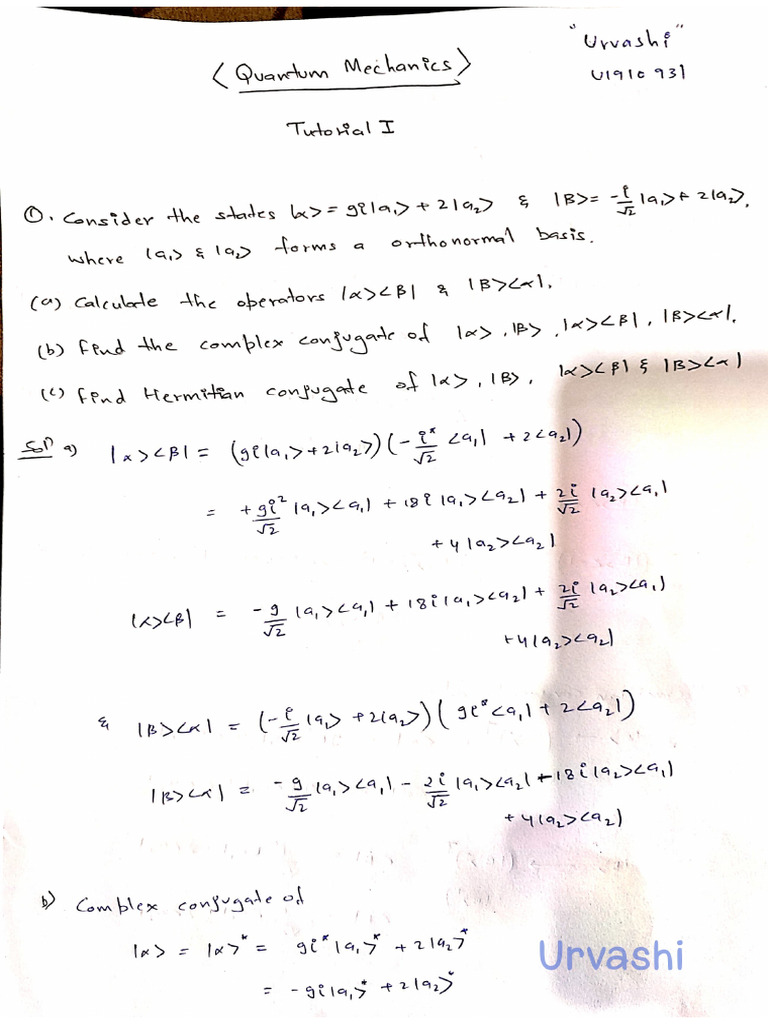 "Urvashi"
< Quantum Mechanics >
U191C931
Tutorial I
①. Consider the states |α> = 9i|a₁> + 2|a₂> & |β> = -i/√2 |a₁> + 2|a₂>,
where |a₁> & |a₂> forms a orthonormal basis.
(a) Calculate the operators |α><β| & |β><α|.
(b) Find the complex conjugate of |α>, |β>, |α><β|, |β><α|.
(c) Find Hermitian conjugate of |α>, |β>, |α><β| & |β><α|
Solⁿ a) |α><β| = (9i|a₁> + 2|a₂>)(-i*/√2 <a₁| + 2<a₂|)
= +9i²/√2 |a₁><a₁| + 18i|a₁><a₂| + 2i/√2 |a₂><a₁|
+ 4|a₂><a₂|
|α><β| = -9/√2 |a₁><a₁| + 18i|a₁><a₂| + 2i/√2 |a₂><a₁|
+4|a₂><a₂|
& |β><α| = (-i/√2 |a₁> + 2|a₂>)(9i*<a₁| + 2<a₂|)
|β><α| = -9/√2 |a₁><a₁| - 2i/√2 |a₁><a₂| - 18i|a₂><a₁|
+ 4|a₂><a₂|
b) Complex conjugate of
|α> = |α>* = 9i*|a₁>* + 2|a₂>*
= -9i|a₁>* + 2|a₂>*
Urvashi